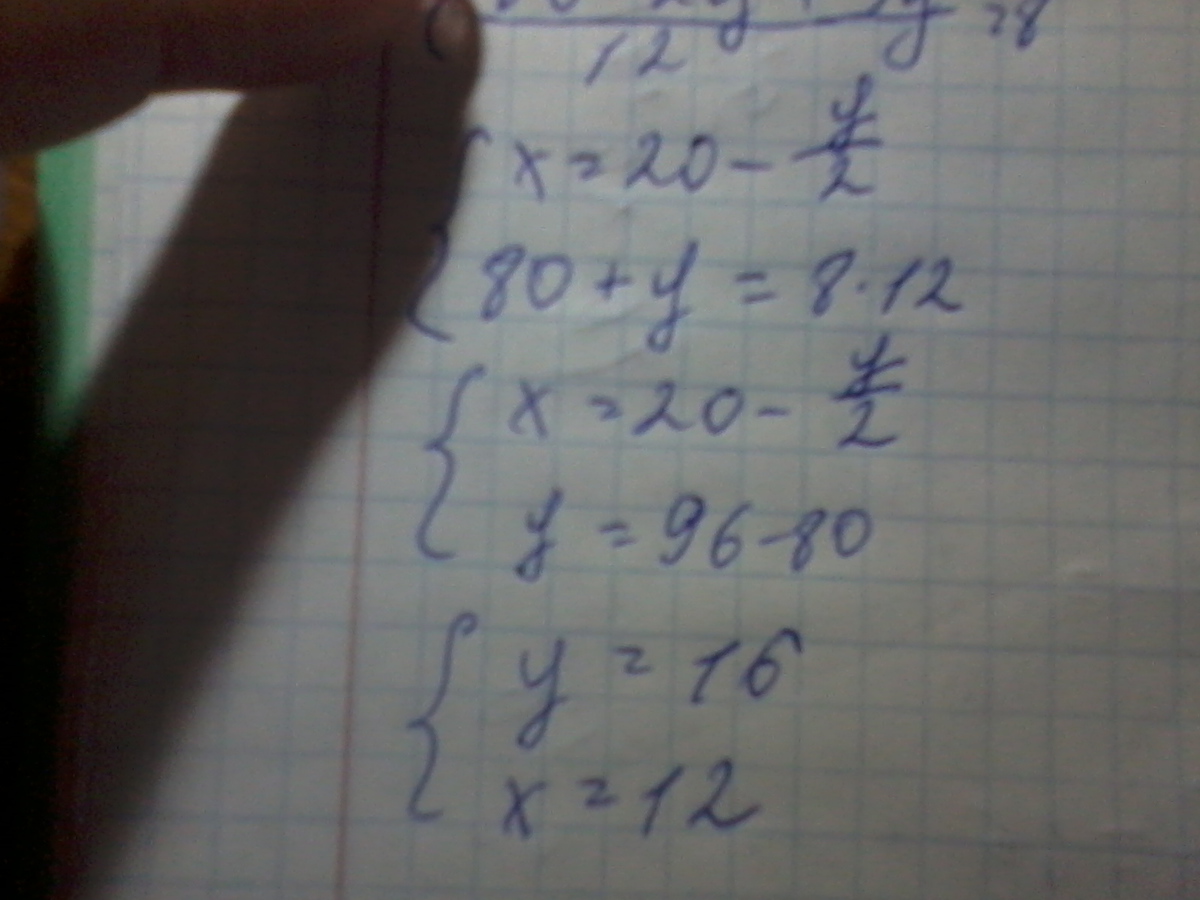 12 = 8
x = 20 - y/2
80 + y = 8 · 12
x = 20 - y/2
y = 96 - 80
y = 16
x = 12